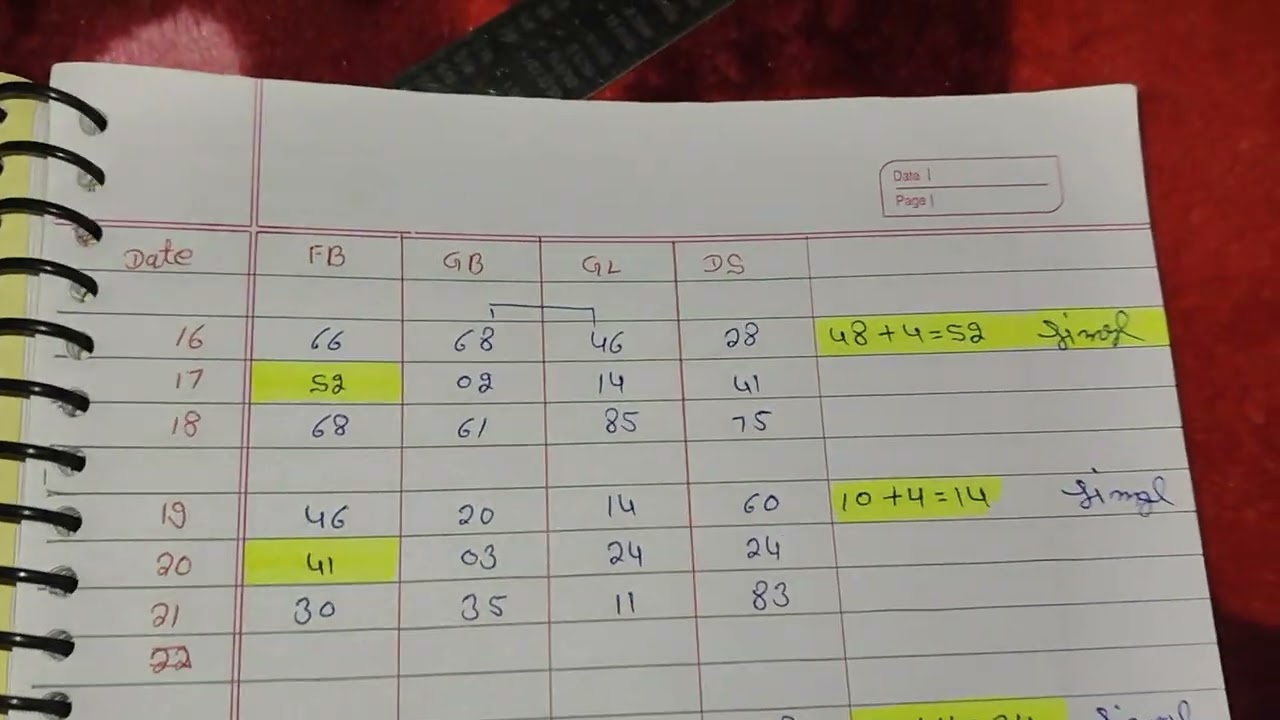 Date
Page
Date FB GB GL DS
16 66 68 46 28 48+4=52 Singl
17 52 02 14 41
18 68 61 85 75
19 46 20 14 60 10+4=14 Singl
20 41 03 24 24
21 30 35 11 83
22